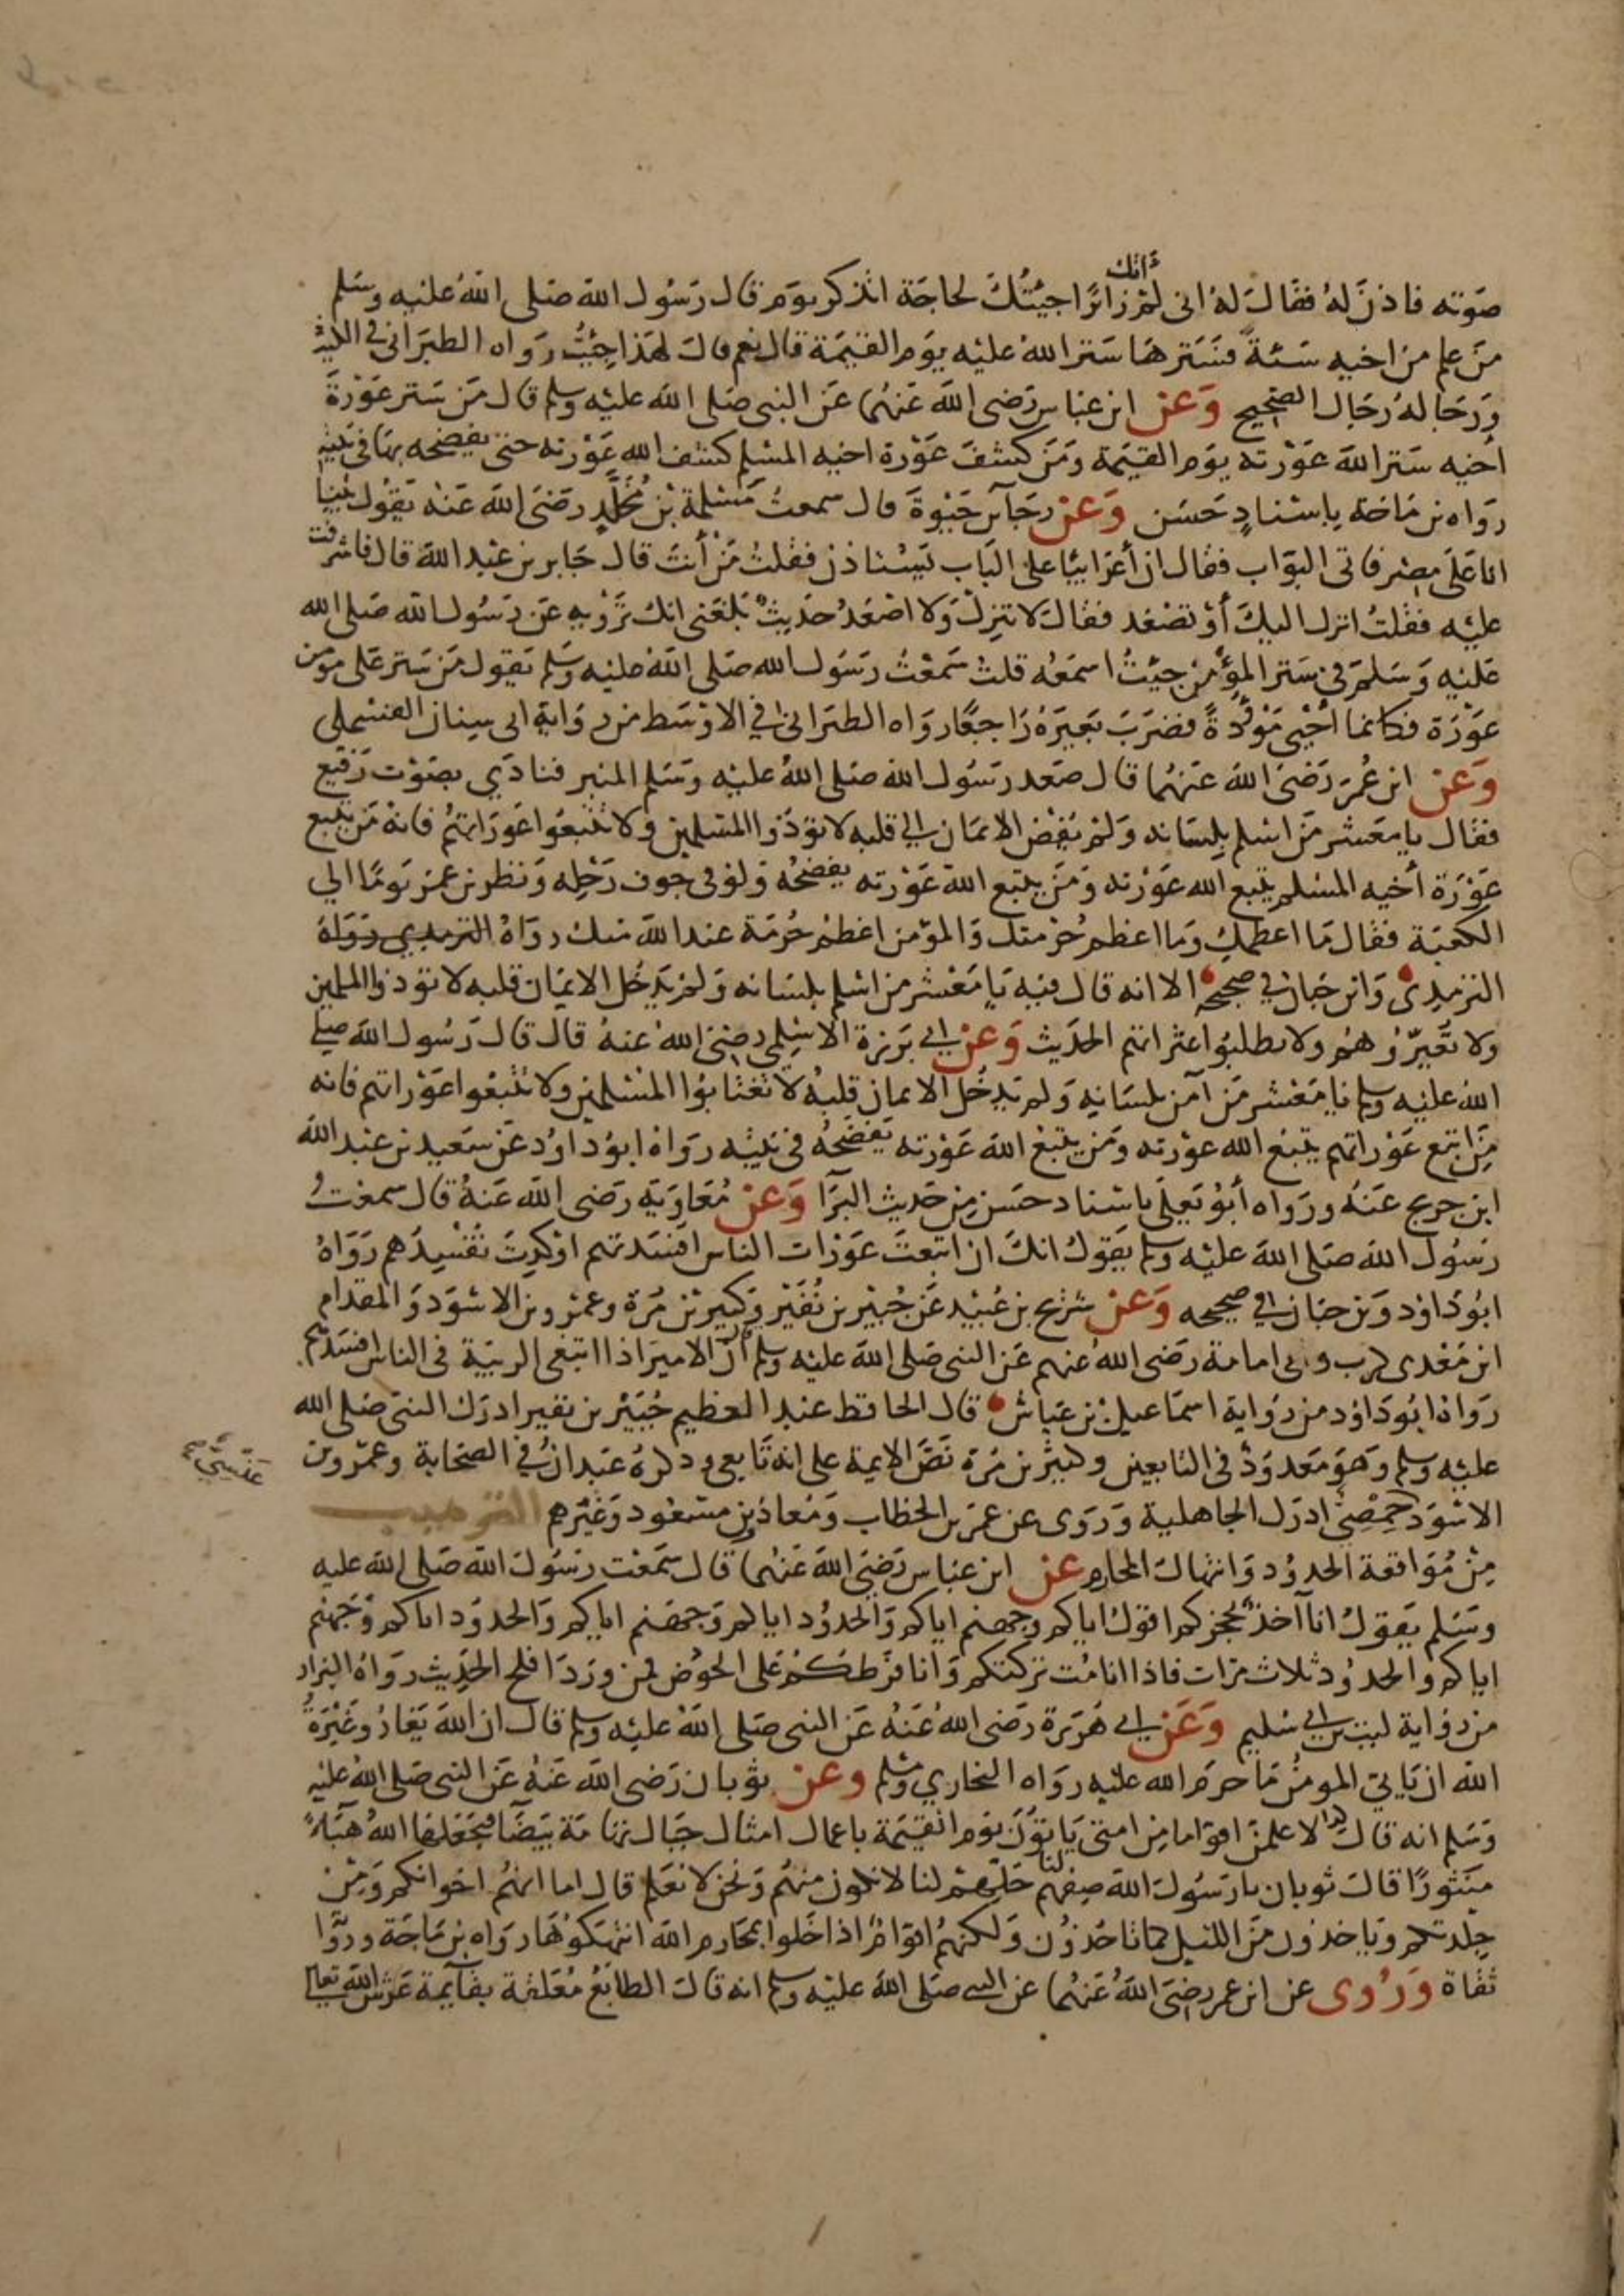 صوته فاذن له فقال له انى لم آتك زائرا جيتك لحاجة اتذكر يوم قال رسول الله صلى الله عليه وسلم
من علم من اخيه سيئة فسترها ستر الله عليه يوم القيمة قال نعم قال لهذا جيت رواه الطبرانى فى الكبير
ورجاله رجال الصحيح وعن ابن عباس رضى الله عنهما عن النبى صلى الله عليه وسلم قال من ستر عورة
اخيه ستر الله عورته يوم القيمة ومن كشف عورة اخيه المسلم كشف الله عورته حتى يفضحه بها فى بيته
رواه بن ماجة باسناد حسن وعن رجآ بن حيوة قال سمعت مسلمة بن مخلد رضى الله عنه يقول بينا
انا على مصر فاتى البواب فقال ان أعرابيا على الباب يستاذن فقلت من أنت قال جابر بن عبد الله قال فاشرفت
عليه فقلت انزل اليك أو تصعد فقال لا تنزل ولا اصعد حديث بلغنى انك ترويه عن رسول الله صلى الله
عليه وسلم فى ستر المؤمن جيت اسمعه قلت سمعت رسول الله صلى الله عليه وسلم يقول من ستر على مومن
عورة فكانما أحيى موؤدة فضرب بعيره راجعا رواه الطبرانى فى الاوسط من رواية ابى سنان القسملى
وعن ابن عمر رضى الله عنهما قال صعد رسول الله صلى الله عليه وسلم المنبر فنادى بصوت رفيع
فقال يا معشر من اسلم بلسانه ولم يفض الايمان الى قلبه لا توذوا المسلمين ولا تتبعوا عوراتهم فانه من تتبع
عورة أخيه المسلم يتبع الله عورته ومن يتبع الله عورته يفضحه ولو فى جوف رحله ونظر بن عمر يوما الى
الكعبة فقال ما اعظمك وما اعظم حرمتك والمؤمن اعظم حرمة عند الله منك رواه الترمدي رواه
الترمذى وابن حبان فى صحيحه الا انه قال فيه يا معشر من اسلم بلسانه ولم يدخل الايمان قلبه لا توذوا المسلمين
ولا تعيروهم ولا تطلبوا عثراتهم الحديث وعن ابى برزة الاسلمى رضى الله عنه قال قال رسول الله صلى
الله عليه وسلم يا معشر من آمن بلسانه ولم يدخل الايمان قلبه لا تغتابوا المسلمين ولا تتبعوا عوراتهم فانه
من اتبع عوراتهم يتبع الله عورته ومن يتبع الله عورته يفضحه فى بيته رواه ابو داود عن سعيد بن عبد الله
ابن جريج عنه ورواه أبو يعلى باسناد حسن من حديث البرآ وعن معاوية رضى الله عنه قال سمعت
رسول الله صلى الله عليه وسلم يقول انك ان اتبعت عورات الناس افسدتهم او كدت تفسيدهم رواه
ابو داود وبن حبان فى صحيحه وعن شريح بن عبيد عن جبير بن نفير وكثير بن مرة وعمرو بن الاسود والمقدام
ابن معدى كرب وابى امامة رضى الله عنهم عن النبى صلى الله عليه وسلم ان الامير اذا ابتغى الريبة فى الناس افسدهم
رواه ابو داود من رواية اسماعيل بن عياش قال الحافظ عبد العظيم جبير بن نفير ادرك النبى صلى الله
عليه وسلم وهو معدود فى التابعين وكثير بن مرة نص الايمة على انه تابعى وذكره عبدان فى الصحابة وعمرو بن
عنسى صح
الاسود حمصى ادرك الجاهلية وروى عن عمر بن الخطاب ومعاذ بن مسعود وغيرهم الترهيب
من مواقعة الحدود وانتهاك المحارم عن ابن عباس رضى الله عنهما قال سمعت رسول الله صلى الله عليه
وسلم يقول انا آخذ بحجزكم اقول اياكم وجهنم اياكم والحدود اياكم وجهنم اياكم والحدود اياكم وجهنم
اياكم والحدود ثلاث مرات فاذا انا مت تركتكم وانا فرطكم على الحوض فمن ورد افلح الحديث رواه البزار
من رواية ليث بن ابى سليم وعن ابى هريرة رضى الله عنه عن النبى صلى الله عليه وسلم قال ان الله يغار وغيرة
الله ان ياتى المومن ما حرم الله عليه رواه البخاري ومسلم وعن ثوبان رضى الله عنه عن النبى صلى الله عليه
وسلم انه قال لاعلمن اقواما من امتى ياتون يوم القيمة باعمال امثال جبال تهامة بيضآ فيجعلها الله هبآء
منثورا قال ثوبان يا رسول الله صفهم لنا حلهم لنا لا نكون منهم ونحن لا نعلم قال اما انهم اخوانكم ومن
جلدتكم وياخذون من الليل كما تاخذون ولكنهم اقوام اذا خلوا بمحارم الله انتهكوها رواه بن ماجة ورواه
ثقاة وروى عن ابن عمر رضى الله عنهما عن النبى صلى الله عليه وسلم انه قال الطابع معلقة بقآيمة عرش الله تعالى